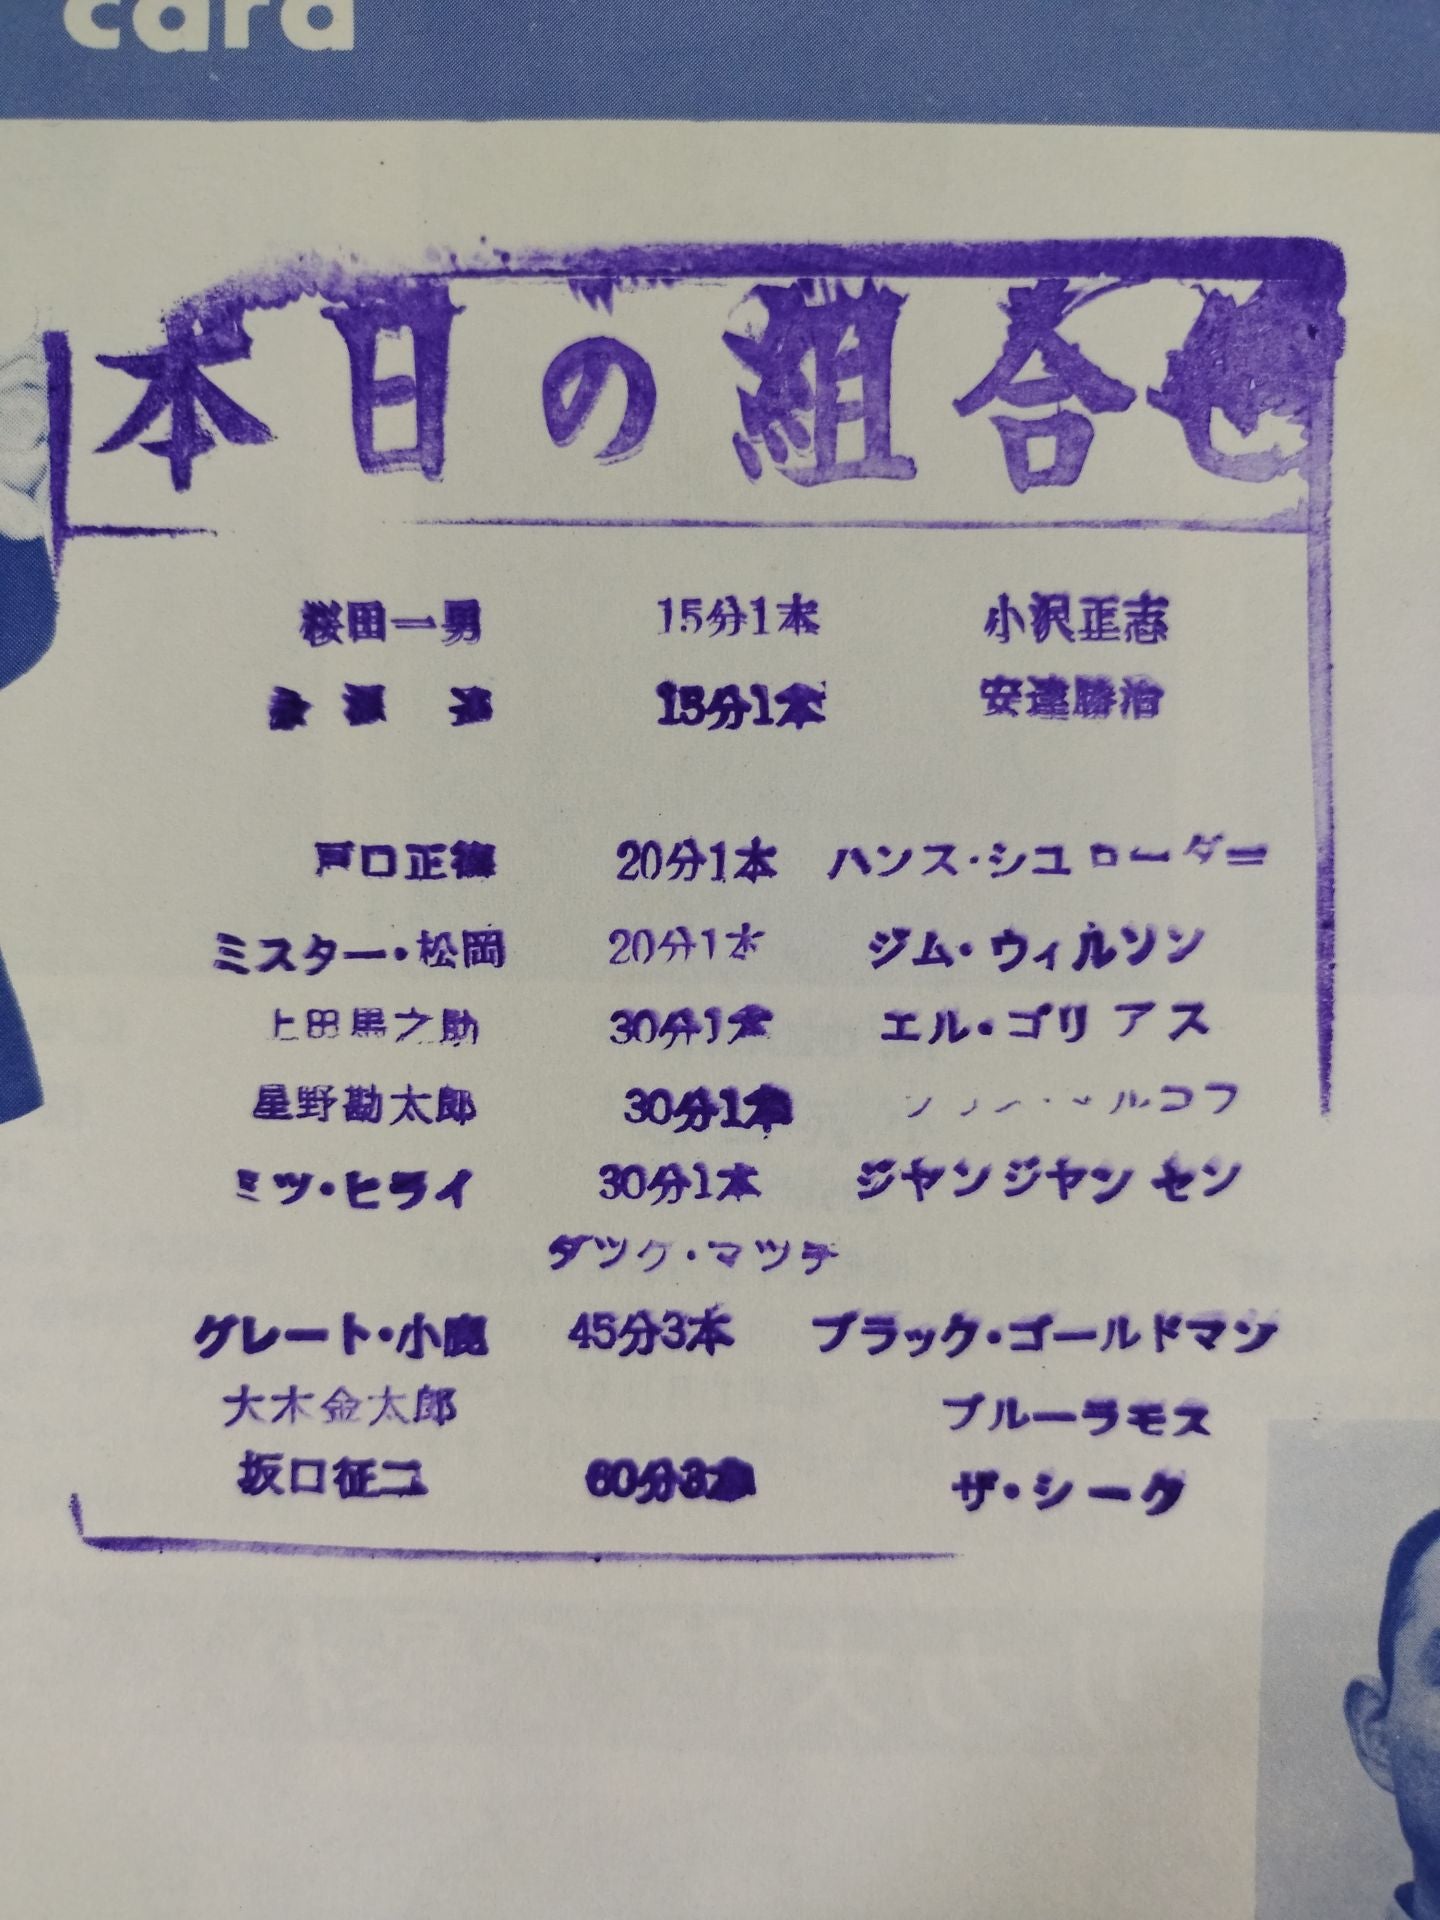 card
本日の組合せ
桜田一男 15分1本 小沢正志
15分1本 安達勝治
戸口正徳 20分1本 ハンス・シユローダー
ミスター・松岡 20分1本 ジム・ウィルソン
上田馬之助 30分1本 エル・ゴリアス
星野勘太郎 30分1本
ミツ・ヒライ 30分1本 ジヤンジヤンセン
タツグ・マツチ
グレート・小鹿 45分3本 ブラック・ゴールドマン
大木金太郎 ブルーラモス
坂口征二 60分3本 ザ・シーク